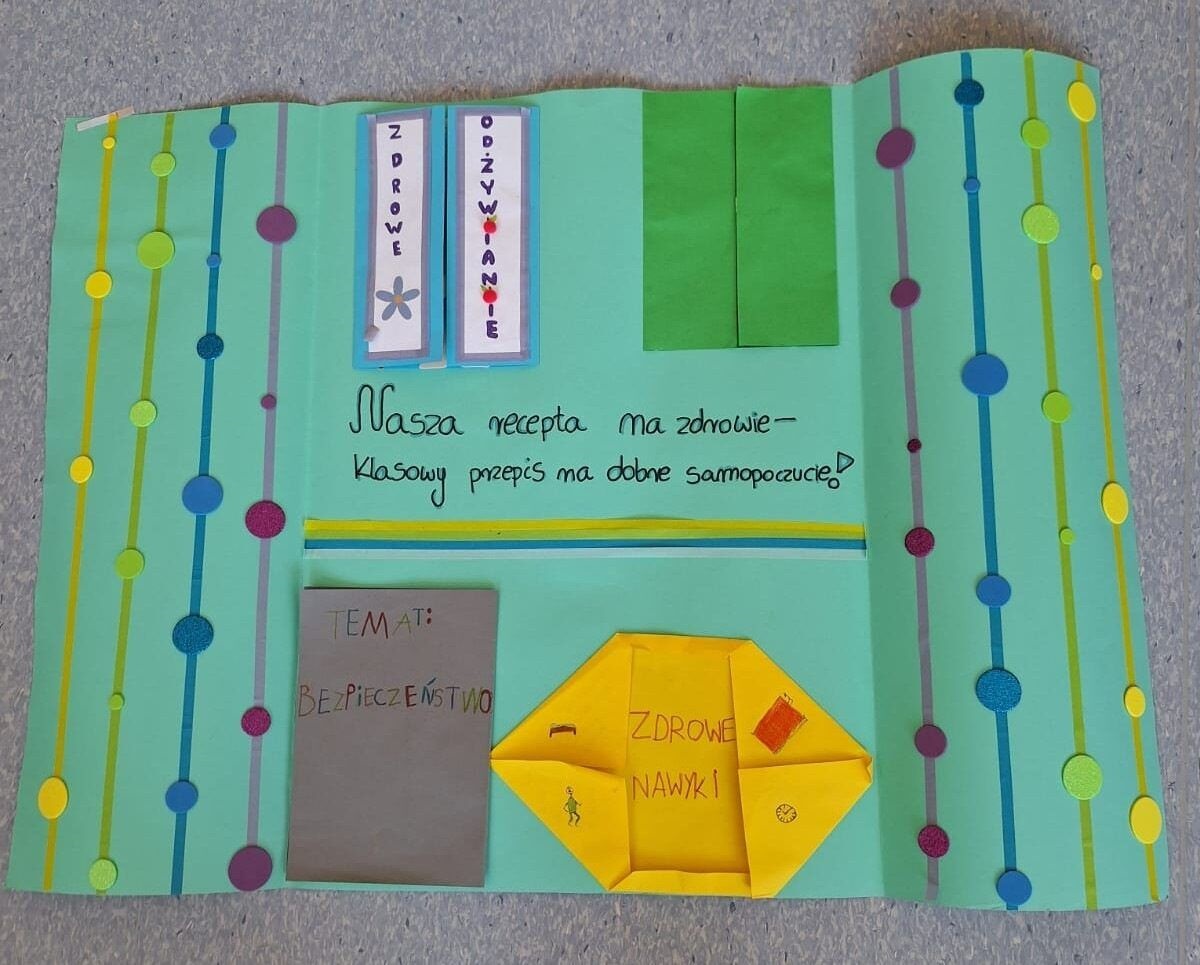 ZDROWE
ODŻYWIANIE
Nasza recepta na zdrowie-
klasowy przepis na dobre samopoczucie!
TEMAT:
BEZPIECZEŃSTWO
ZDROWE
NAWYKI